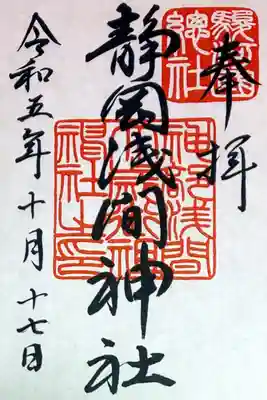 奉拝
駿府
總社
静岡浅間神社
神部浅間
令和五年十月十七日